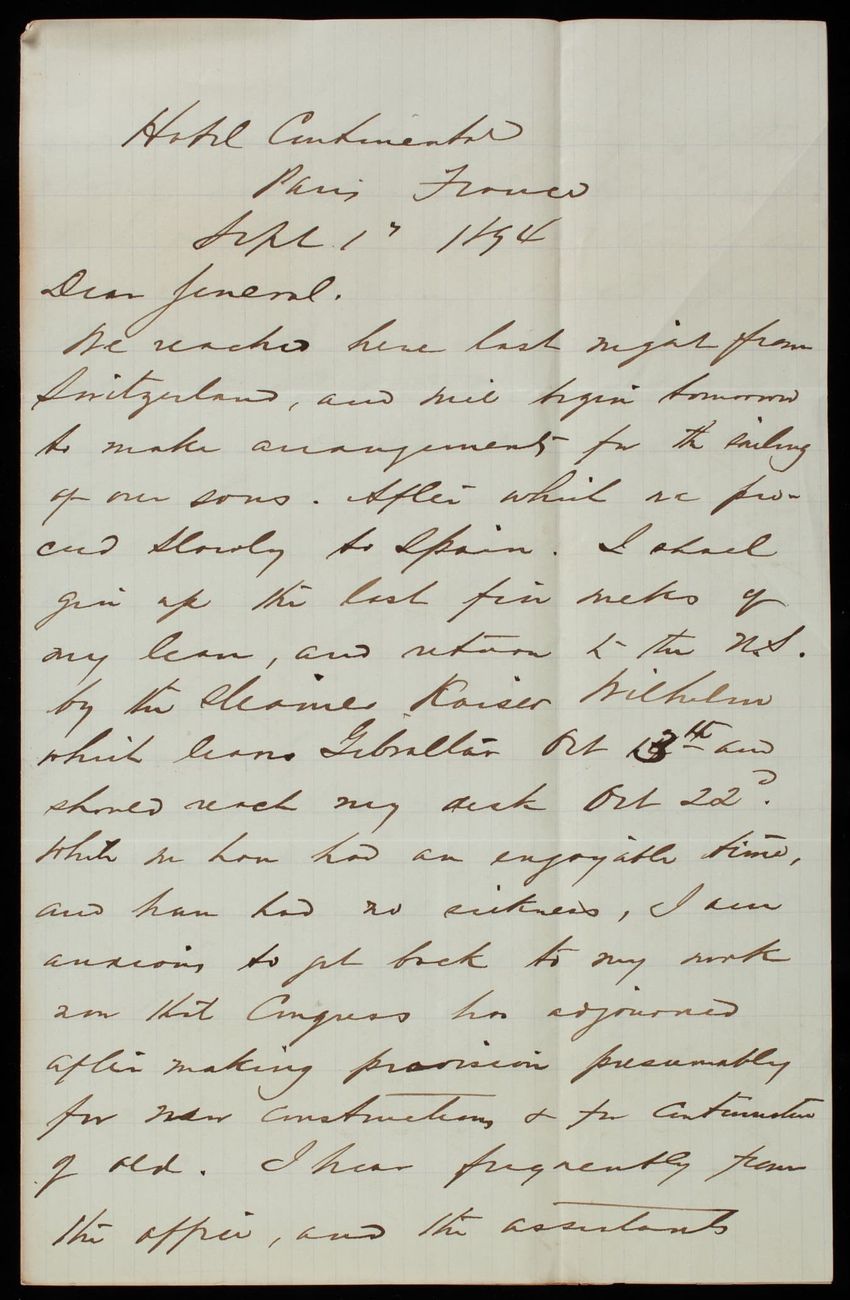 Hotel Continental
Paris France
Sept. 1st 1894
Dear General.
We reached here last night from
Switzerland, and will begin tomorrow
to make arrangements for the sailing
of our sons. After which we pro-
ceed slowly to Spain. I shall
give up the last few weeks of
my leave, and return to the U.S.
by the steamer Kaiser Wilhelm
which leaves Gibraltar Oct 13th and
should reach my desk Oct 22d.
While we have had an enjoyable time,
and have had no sickness, I am
anxious to get back to my work
now that Congress has adjourned
after making provision presumably
for new constructions & for continuation
of old. I hear frequently from
the office, and the assistants